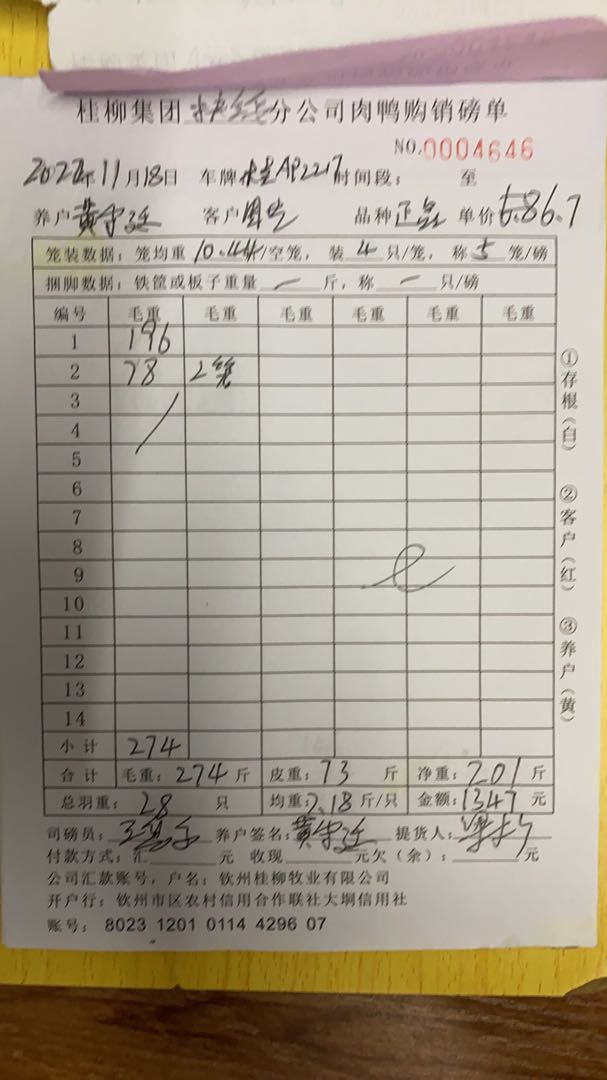 桂柳集团 分公司肉鸭购销磅单
NO.0004646
2022年11月18日 车牌 AP2217 时间段： 至
养户 黄 廷 客户 品种 正品 单价 6.7
笼装数据：笼均重 10.4斤/空笼，装 4 只/笼，称 5 笼/磅
捆脚数据：铁筐或板子重量 一 斤，称 一 只/磅
编号 毛重 毛重 毛重 毛重 毛重 毛重
1 196
2 78 2笼
3
4
5
6
7
8
9
10
11
12
13
14
小计 274
合计 毛重：274斤 皮重：73 斤 净重：201斤
总羽重：28 只 均重：7.18斤/只 金额：1347元
司磅员： 养户签名：黄 廷 提货人：
付款方式：汇 元 收现 元欠（余）： 元
公司汇款账号，户名：钦州桂柳牧业有限公司
开户行：钦州市区农村信用合作联社大垌信用社
账号： 8023 1201 0114 4296 07
①存根（白） ②客户（红） ③养户（黄）